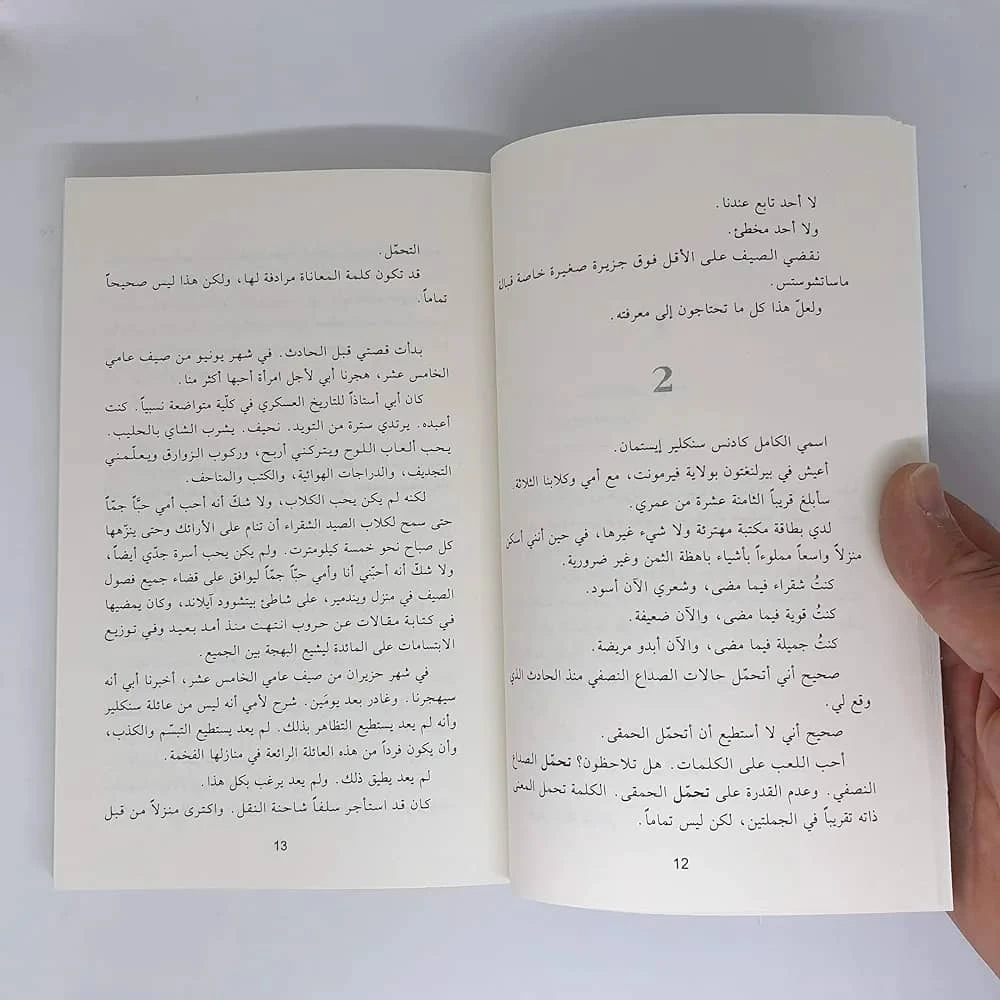 لا أحد تابع عندنا.
ولا أحد مخطئ.
نقضي الصيف على الأقل فوق جزيرة صغيرة خاصة قبالة
ماساتشوستس.
ولعلّ هذا كل ما تحتاجون إلى معرفته.
2
اسمي الكامل كادنس سنكلير إيستمان.
أعيش في بيرلنغتون بولاية فيرمونت، مع أمي وكلابنا الثلاثة.
سأبلغ قريباً الثامنة عشرة من عمري.
لدي بطاقة مكتبة مهترئة ولا شيء غيرها، في حين أنني أسكن
منزلاً واسعاً مملوءاً بأشياء باهظة الثمن وغير ضرورية.
كنتُ شقراء فيما مضى، وشعري الآن أسود.
كنتُ قوية فيما مضى، والآن ضعيفة.
كنتُ جميلة فيما مضى، والآن أبدو مريضة.
صحيح أني أتحمّل حالات الصداع النصفي منذ الحادث الذي
وقع لي.
صحيح أني لا أستطيع أن أتحمّل الحمقى.
أحب اللعب على الكلمات. هل تلاحظون؟ تحمّل الصداع
النصفي. وعدم القدرة على تحمّل الحمقى. الكلمة تحمل المعنى
ذاته تقريباً في الجملتين، لكن ليس تماماً.
12
التحمّل.
قد تكون كلمة المعاناة مرادفة لها، ولكن هذا ليس صحيحاً
تماماً.
بدأت قصتي قبل الحادث. في شهر يونيو من صيف عامي
الخامس عشر، هجرنا أبي لأجل امرأة أحبها أكثر منا.
كان أبي أستاذاً للتاريخ العسكري في كلّية متواضعة نسبياً. كنت
أعبده. يرتدي سترة من التويد. نحيف. يشرب الشاي بالحليب.
يحب ألعاب اللوح ويتركني أربح، وركوب الزوارق ويعلّمني
التجديف، والدراجات الهوائية، والكتب والمتاحف.
لكنه لم يكن يحب الكلاب، ولا شكّ أنه أحب أمي حبًّا جمّاً
حتى سمح لكلاب الصيد الشقراء أن تنام على الأرائك وحتى ينزّهها
كل صباح نحو خمسة كيلومترت. ولم يكن يحب أسرة جدّي أيضاً،
ولا شكّ أنه أحبّني أنا وأمي حبّاً جمّاً ليوافق على قضاء جميع فصول
الصيف في منزل ويندمير، على شاطئ بيتشوود آيلاند، وكان يمضيها
في كتابة مقالات عن حروب انتهت منذ أمد بعيد وفي توزيع
الابتسامات على المائدة ليشيع البهجة بين الجميع.
في شهر حزيران من صيف عامي الخامس عشر، أخبرنا أبي أنه
سيهجرنا. وغادر بعد يومَين. شرح لأمي أنه ليس من عائلة سنكلير
وأنه لم يعد يستطيع التظاهر بذلك. لم يعد يستطيع التبسّم والكذب،
وأن يكون فرداً من هذه العائلة الرائعة في منازلها الفخمة.
لم يعد يطيق ذلك. ولم يعد يرغب بكل هذا.
كان قد استأجر سلفاً شاحنة النقل. واكترى منزلاً من قبل
13